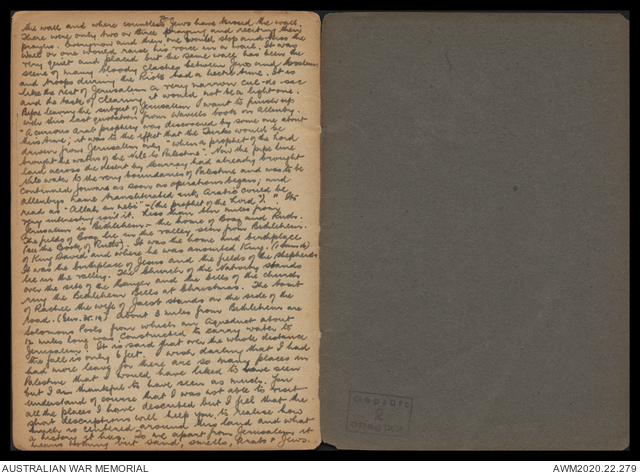 the wall and where countless Jews have kissed the wall.
There were only two or three praying and reciting their
prayers. Everynow and then one would stop and kiss the
wall or one would raise his voice in a wail. It was
very quiet and placed but the same wall has been the
scene of many bloody clashes between Jews and Moslems
and troops during the Riots had a hectic time. It is
like the rest of Jerusalem a very narrow cul-de-sac
and the task of clearing it would not be a light one.
Before leaving the subject of Jerusalem I want to finish up
with this last quotation from Wavells book on Allenby.
"A curious Arab prophecy was discovered by some one about
this time; it was to the effect that the Turks would be
driven from Jerusalem only "when a prophet of the Lord
brought the waters of the Nile to Palestine". Now the pipe line
laid across the desert by Murray had already brought
Nile water to the very boundaries of Palestine and was to be
continued forward as soon as operations began; and
Allenbys name transliterated into Arabic could be
read as "Allah en nebi" - (the prophet of the Lord)." Its
very interesting isn't it. Less than six miles from
Jerusalem is Bethlehem - the home of Boaz and Ruth.
The fields of Boaz lie in the valley, seen from Bethlehem.
(see the Book of Ruth). It was the home and birthplace
of King David and where he was anointed King. (1 Sam.)
It was the birthplace of Jesus and the fields of the shepherds
lie in the valley. The Church of the Nativity stands
over the site of the Manger and the bells of the church
ring the Bethlehem Bells at Christmas. The tomb
of Rachel the wife of Jacob stands on the side of the
road. (Gen. 35. 19) About 3 miles from Bethlehem are
Solomons Pools from which an Aqueduct about
12 miles long was constructed to carry water to
Jerusalem. It is said that over the whole distance
the fall is only 6 feet. I wish darling that I had
had more leave for there are so many places in
Palestine that I would have liked to have seen
but I am thankful to have seen as much. You
understand of course that I was not able to visit
all the places I have described but I feel that the
short descriptions will help you to realise how
much is centered around this land and what
a history it has. So we depart from Jerusalem, it
means nothing but sand, smells, Arabs & Jews.
2
AUSTRALIAN WAR MEMORIAL
AWM2020.22.279